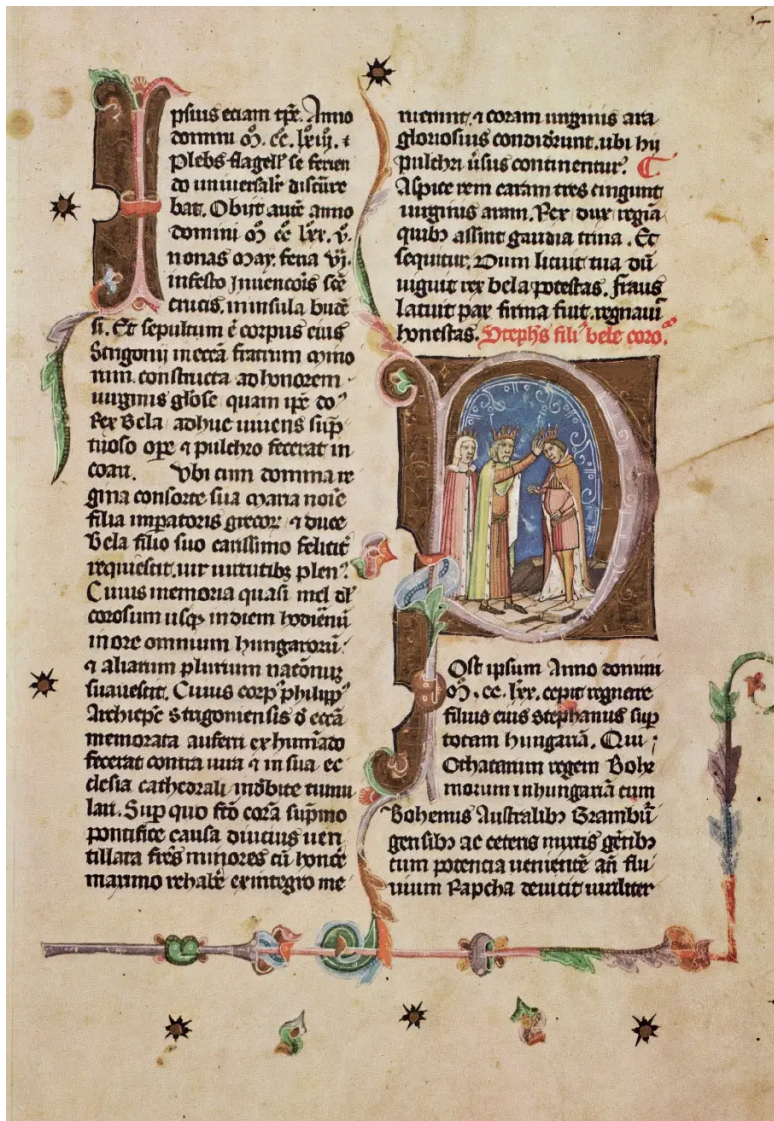 Ipsius etiam tp̄re. Anno
domini ꝳ. cc. lxiij. ⁊
Plebs flagell' se ferien
do uniuersalr̄ discure
bat. Obijt autē anno
domini ꝳ cc lxx. v.
nonas may. feria vj.
infesto Inuencōis sc̄e
crucis. in insula buce
si. Et sepultum ē corpus eius
Strigonij in ecc̄a fratrum mino
rum. constructa ad honorem
uirginis gl̄ose quam ip̄e
Rex Bela adhuc uiuens sūp
tuoso op̄e ⁊ pulchro fecerat in
coari. Vbi cum domina re
gina consorte sua maria noīe
filia imp̄atoris grecoꝝ ⁊ duce
Bela filio suo carissimo felicit̄
requiescit. uir uirtutibꝫ plen⁹
Cuius memoria quasi mel dl̄
corosum usqꝫ in diem hodiernū
in ore omnium hungarorū
⁊ aliarum plurium natōnuꝫ
suauescit. Cuius corp⁹ philipp⁹
Archiep̄c Strigoniensis d̄ ecc̄a
memorata auferri exhumādo
fecerat contra iura ⁊ in sua ec
clesia cathedrali indbite tumu
lari. Sup quo fc̄o corā sup̄mo
pontifice causa diucius uen
tillata fr̄es minores cū honōe
maximo rehabe ex integro me
ruerunt. ⁊ coram uirginis ara
gloriosius condidr̄unt. ubi hij
pulchri ūsus continentur.
Aspice rem caram tres cingunt
uirginis aram. Rex dux regiā
quibꝫ assint gaudia trina. Et
sequitur. Dum licuit tua dū
uiguit rex bela potestas. fraus
latuit pax firma fuit. regnauit
honestas. Steph̄s fili⁹ bele coro.
Post ipsum Anno domini
ꝳ. cc. lxx. cepit regnare
filius eius Stephanus sup
totam hungariā. Qui
Othatarum regem Bohe
morum in hungariā cum
Bohemis Australibꝫ Brambū
gensibꝫ ac ceteris mixtis gētibꝫ
cum potencia uenientē an̄ flu
uium Rapcha deuicit uiriliter